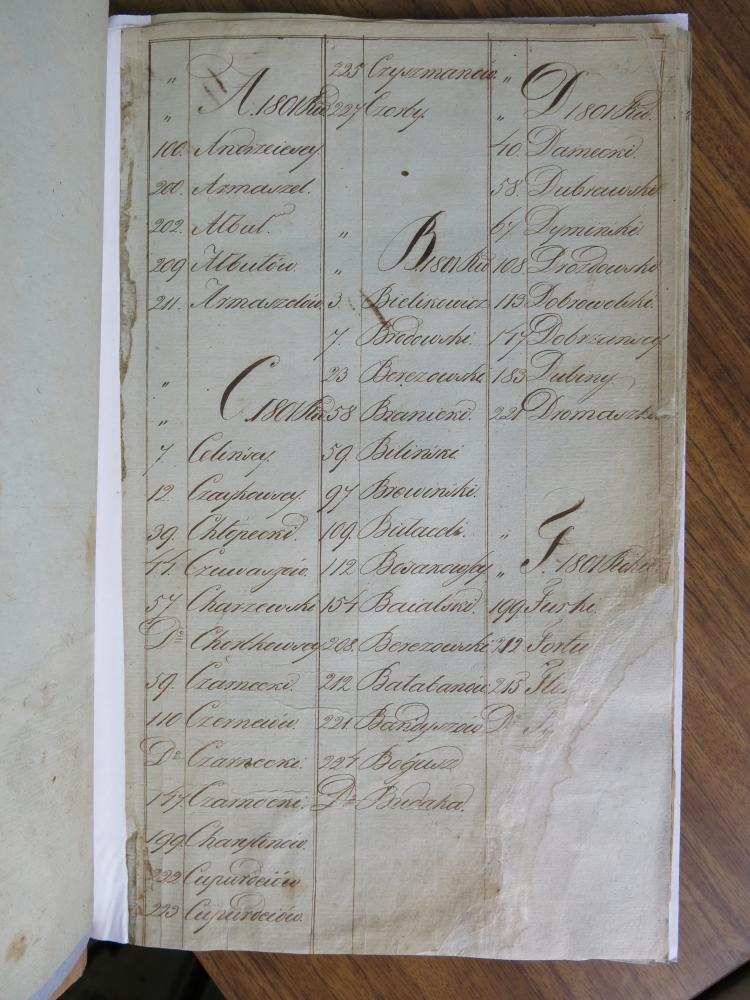 „ A. 1801 Ru
„
100. Andrzeiewscy
200. Armaszel.
202. Albul.
209 Albulów.
211. Armaszelów
„ C. 1801 Ru.
„
7. Celińscy
12. Czaykowscy.
39. Chłopecki.
44. Czuwaszów.
57 Charzewski
Dto Chorłkowscy
59. Czarnecki.
110 Czernewów.
Do Czarnecki.
147. Czarnocki.
199 Charytinów.
222 Cupurdeiów
223 Cupurdeiów.
225 Czyszmanów.
227 Czorby.
„
„ B. 1801 Ru
3. Bielikowicz
7. Brodowski.
23 Berezowski.
58 Branicki.
59. Biliński.
97 Browiński.
109. Bielaccki.
112
154 Baialski.
208. Berezowski
212 Bałabanów
221. Bandyszów
224 Bogusz
Do Budaka.
„ D 1801 Ru.
„
40. Darnecki.
58. Dubrawski
67. Dyminski
108 Drozdowski
113 Dobrowolski.
147 Dobrzańscy
183 Dubiny.
221 Dromaszko
„
„ F. 1801 Roku
199 Furki
212 Fortu
215
Do